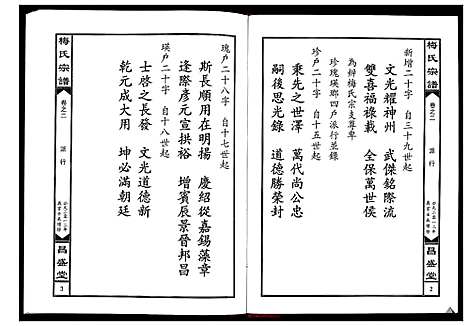 梅氏宗譜
卷之二
派行
昌盛堂
2
新增二十字 自三十九世起
文光耀神州 武傑銘際流
雙喜福祿載 全保萬世侯
為辨梅氏宗支尊卑
珍瑰瑛瑯四戶派行並錄
珍戶二十字 自十五世起
秉先之世澤 萬代尚公忠
嗣後思光錄 道德勝榮封
梅氏宗譜
卷之二
派行
昌盛堂
3
瑰戶二十八字 自十七世起
斯長順用在明揚 慶紹從嘉錫藻章
逢際彥元宣拱裕 增賓辰景晉邦昌
瑛戶二十字 自十八世起
士啓之長發 文光道德新
乾元成大用 坤必滿朝廷